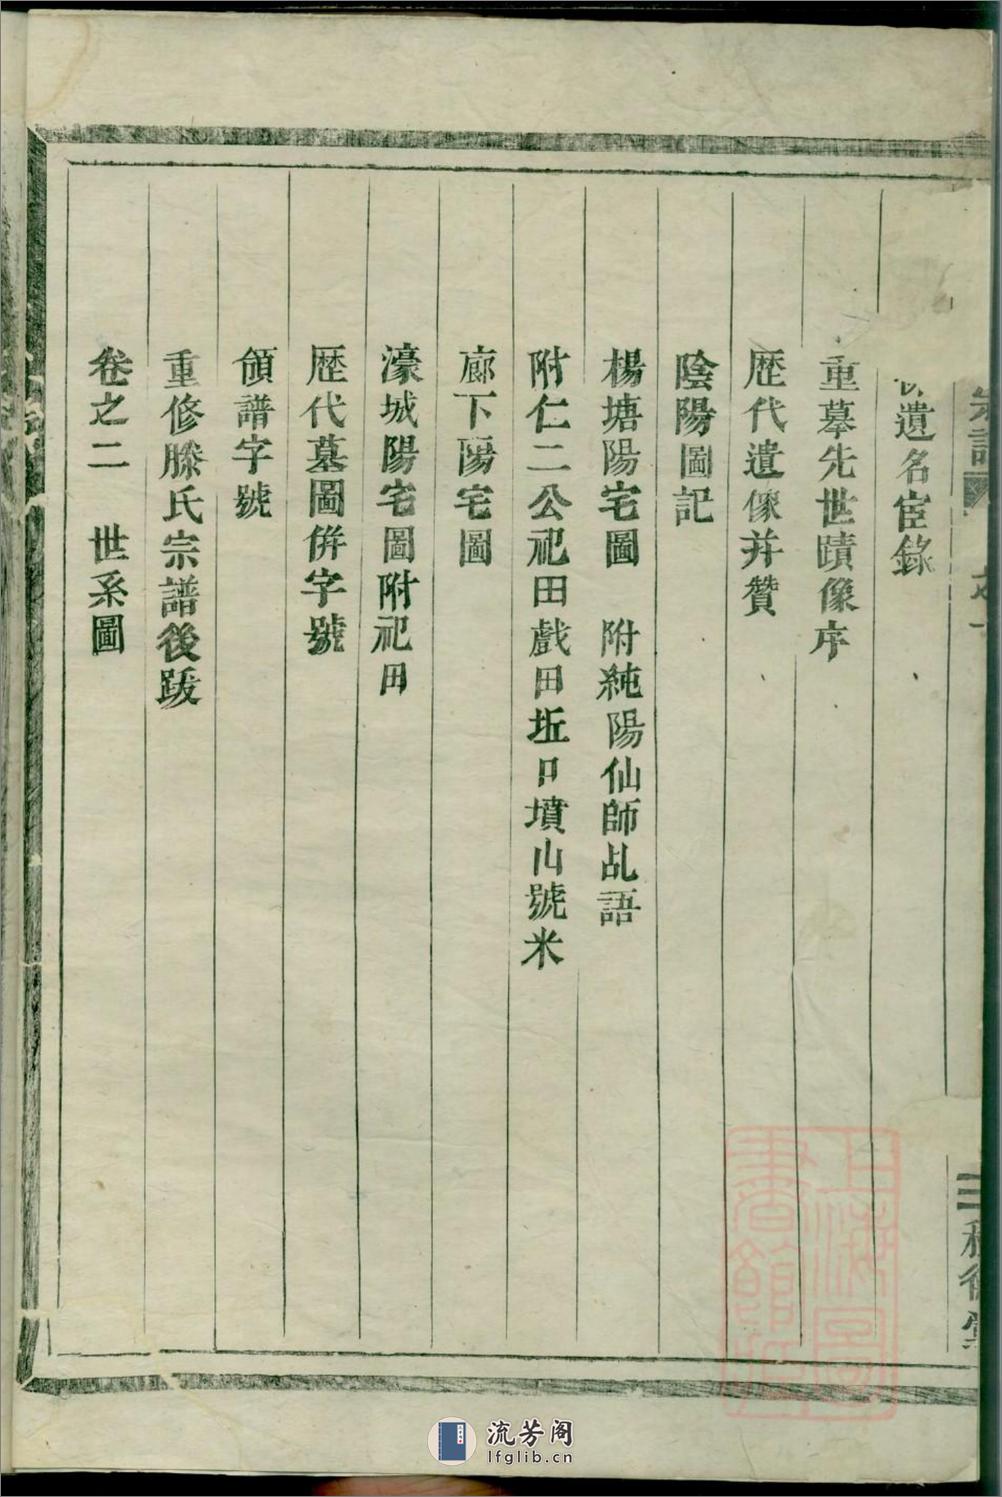 宗譜
遺名宦錄
重摹先世蹟像序
歷代遺像并贊
陰陽圖記
楊塘陽宅圖　附純陽仙師乩語
附仁二公祀田戲田坵口墳山號米
廊下陽宅圖
濠城陽宅圖附祀田
歷代墓圖併字號
領譜字號
重修滕氏宗譜後跋
卷之二　世系圖
上海圖書館藏
流芳阁
lfglib.cn